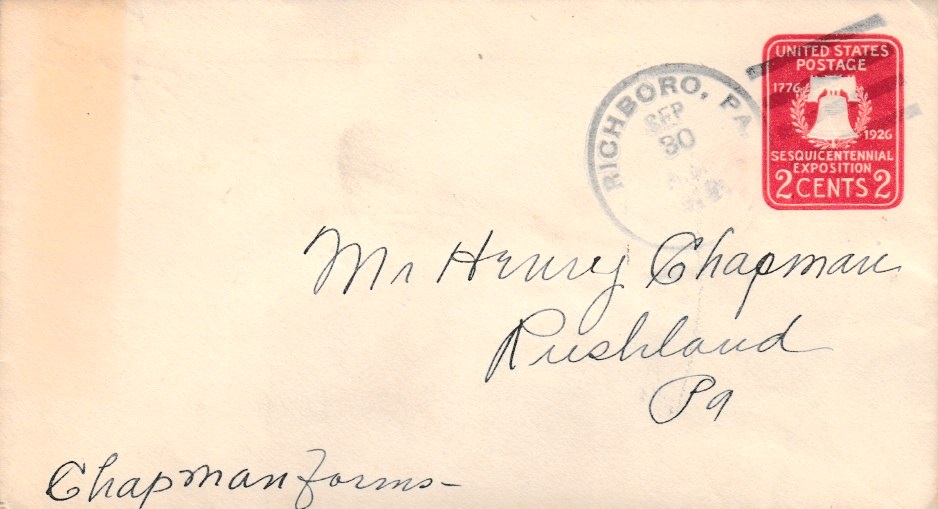 UNITED STATES
POSTAGE
1776
1926
SESQUICENTENNIAL
EXPOSITION
2 CENTS 2
RICHBORO, PA.
SEP
30
Mr Henry Chapman
Rushland
Pa
Chapman forms-